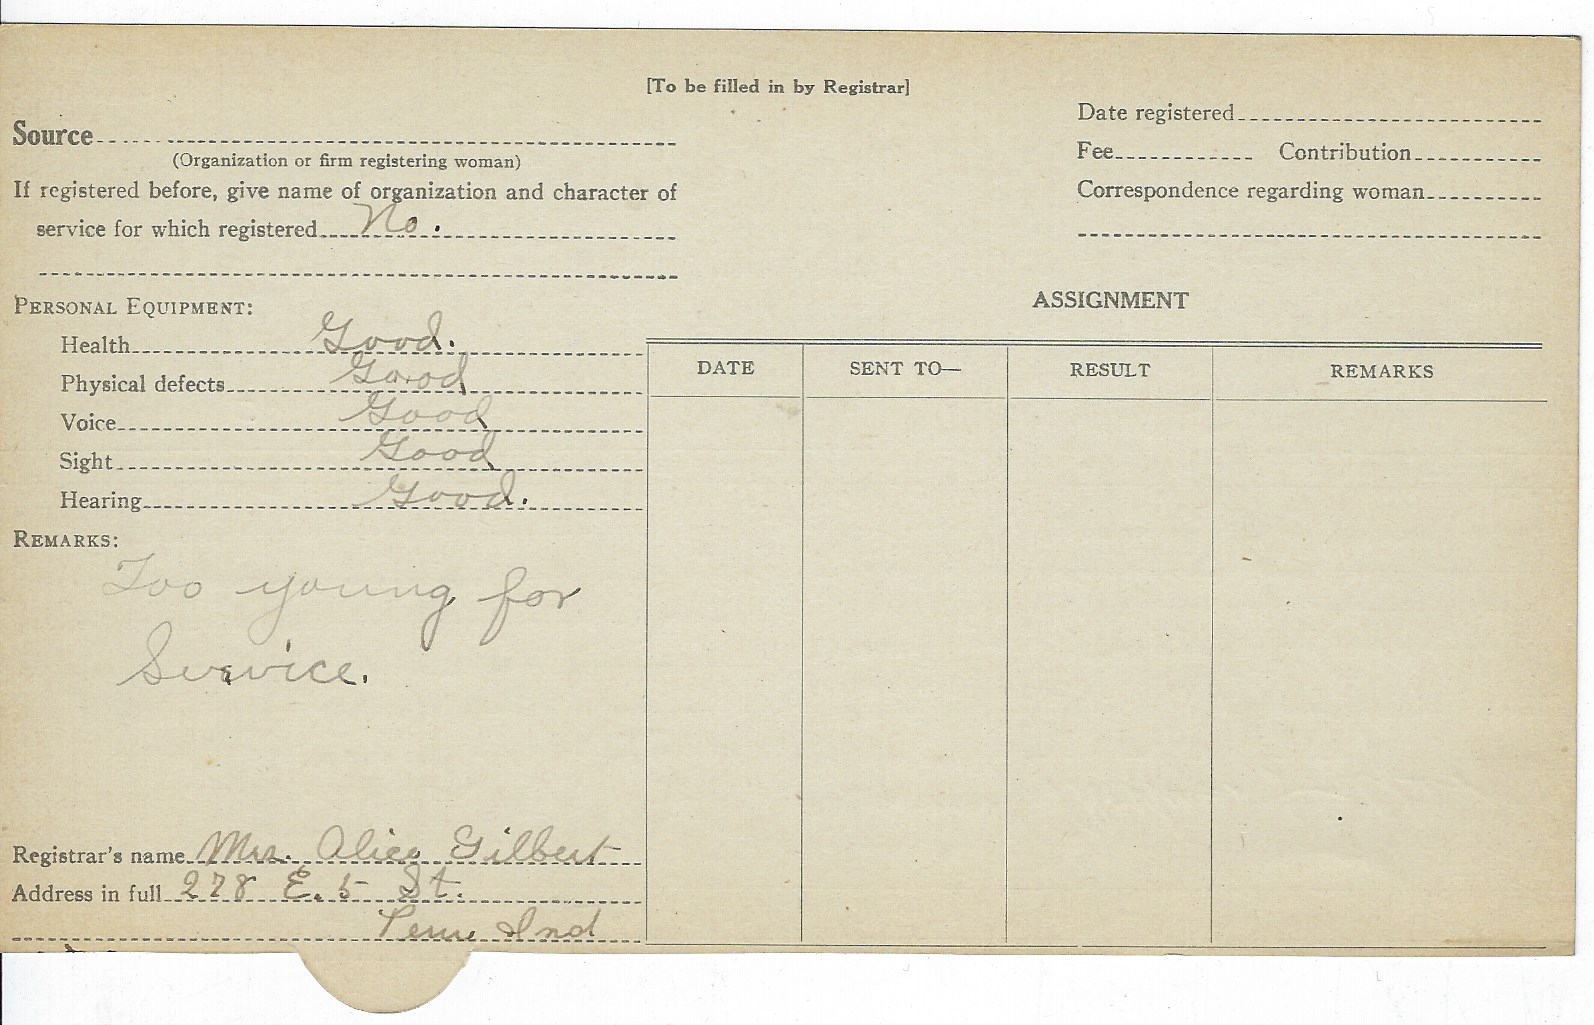 [To be filled in by Registrar]
Source
(Organization or firm registering woman)
If registered before, give name of organization and character of
service for which registered No.
Date registered
Fee Contribution
Correspondence regarding woman
PERSONAL EQUIPMENT:
Health Good.
Physical defects Good
Voice Good
Sight Good
Hearing Good.
REMARKS:
Too young for
Service.
Registrar's name Mrs. Alice Gilbert
Address in full 278 E. 5 St.
Peru Ind
ASSIGNMENT
DATE SENT TO— RESULT REMARKS